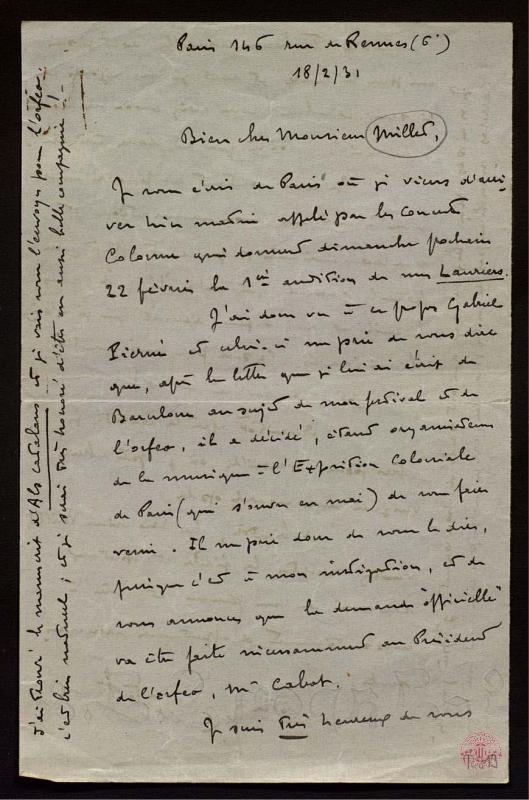 Paris 146 rue de Rennes (6e)
18/2/31
Bien cher Monsieur Millet,
Je vous écris de Paris où je viens d'arri-
ver hier matin appelé par les Concerts
Colonne qui donnent dimanche prochain
22 février la 1ère audition de mes Lauriers.
J'ai donc vu à ce propos Gabriel
Pierné et celui-ci me prie de vous dire
que, après la lettre que je lui ai écrit de
Barcelone au sujet de mon festival et de
l'orfeo, il a décidé, étant organisateur
de la musique à l'Exposition Coloniale
de Paris (qui s'ouvre en mai) de vous faire
venir. Il me prie donc de vous le dire,
puisque c'est à mon instigation, et de
vous annoncer que la demande "officielle"
va être faite incessamment au Président
de l'orfeo, Mr Cabot.
Je suis très heureux de vous
J'ai trouvé le manuscrit d'Als catalans et je vais vous l'envoyer pour l'orfeo,
c'est bien naturel ; et je serai très honoré d'être en aussi belle compagnie !